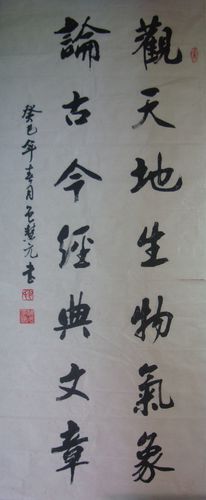 觀天地生物氣象
論古今經典文章
癸巳年春月
書